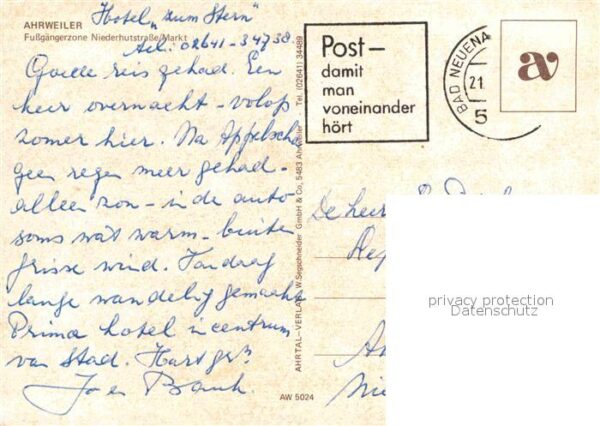 AHRWEILER
Fußgängerzone Niederhutstraße/Markt
Hotel „zum Stern"
Tel: 02641-34738.
Goede reis gehad. Een
keer overnacht - volop
zomer hier. Na Appelscha
geen regen meer gehad -
alleen zon - in de auto
soms wat warm - buiten
frisse wind. Vandaag
lange wandeling gemaakt
Prima hotel in centrum
van Stad. Hart gr.
Jo en
AHRTAL-VERLAG W. Segschneider GmbH & Co, 5483 Ahrweiler Tel. (02641) 34489
AW 5024
Post-
damit
man
voneinander
hört
BAD NEUENA
21.
5
av
De heer
privacy protection
Datenschutz